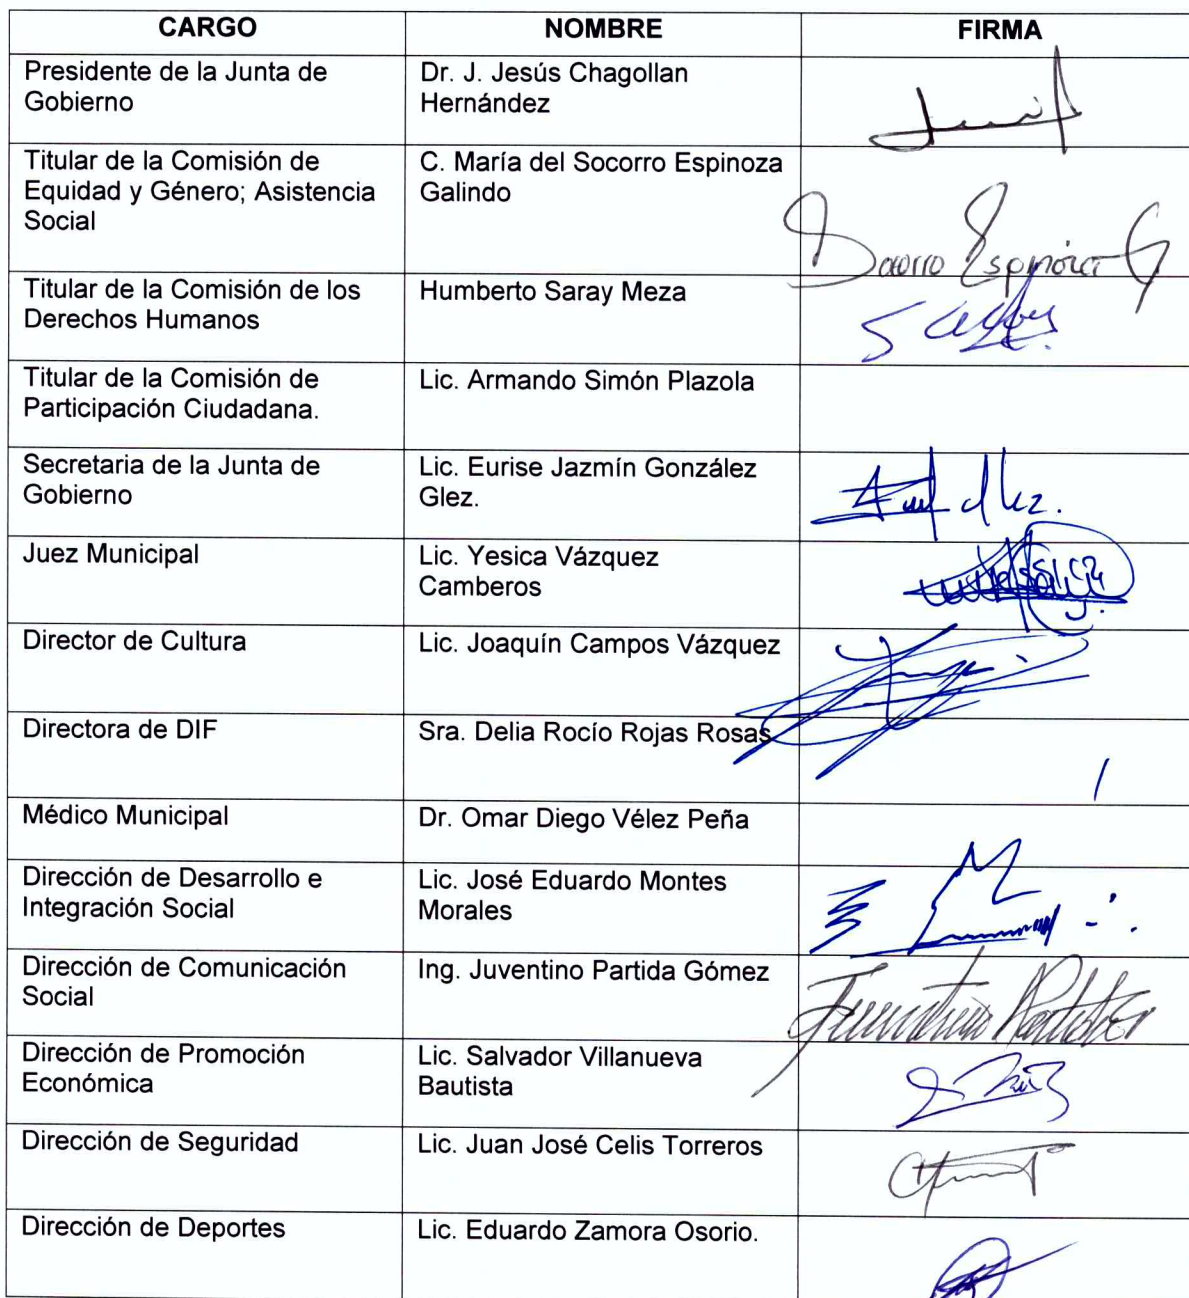 CARGO NOMBRE FIRMA
Presidente de la Junta de Gobierno
Dr. J. Jesús Chagollan Hernández
Titular de la Comisión de Equidad y Género; Asistencia Social
C. María del Socorro Espinoza Galindo
Socorro Espinoza G
Titular de la Comisión de los Derechos Humanos
Humberto Saray Meza
Titular de la Comisión de Participación Ciudadana.
Lic. Armando Simón Plazola
Secretaria de la Junta de Gobierno
Lic. Eurise Jazmín González Glez.
Juez Municipal
Lic. Yesica Vázquez Camberos
Director de Cultura
Lic. Joaquín Campos Vázquez
Directora de DIF
Sra. Delia Rocío Rojas Rosas
Médico Municipal
Dr. Omar Diego Vélez Peña
Dirección de Desarrollo e Integración Social
Lic. José Eduardo Montes Morales
Dirección de Comunicación Social
Ing. Juventino Partida Gómez
Dirección de Promoción Económica
Lic. Salvador Villanueva Bautista
Dirección de Seguridad
Lic. Juan José Celis Torreros
Dirección de Deportes
Lic. Eduardo Zamora Osorio.